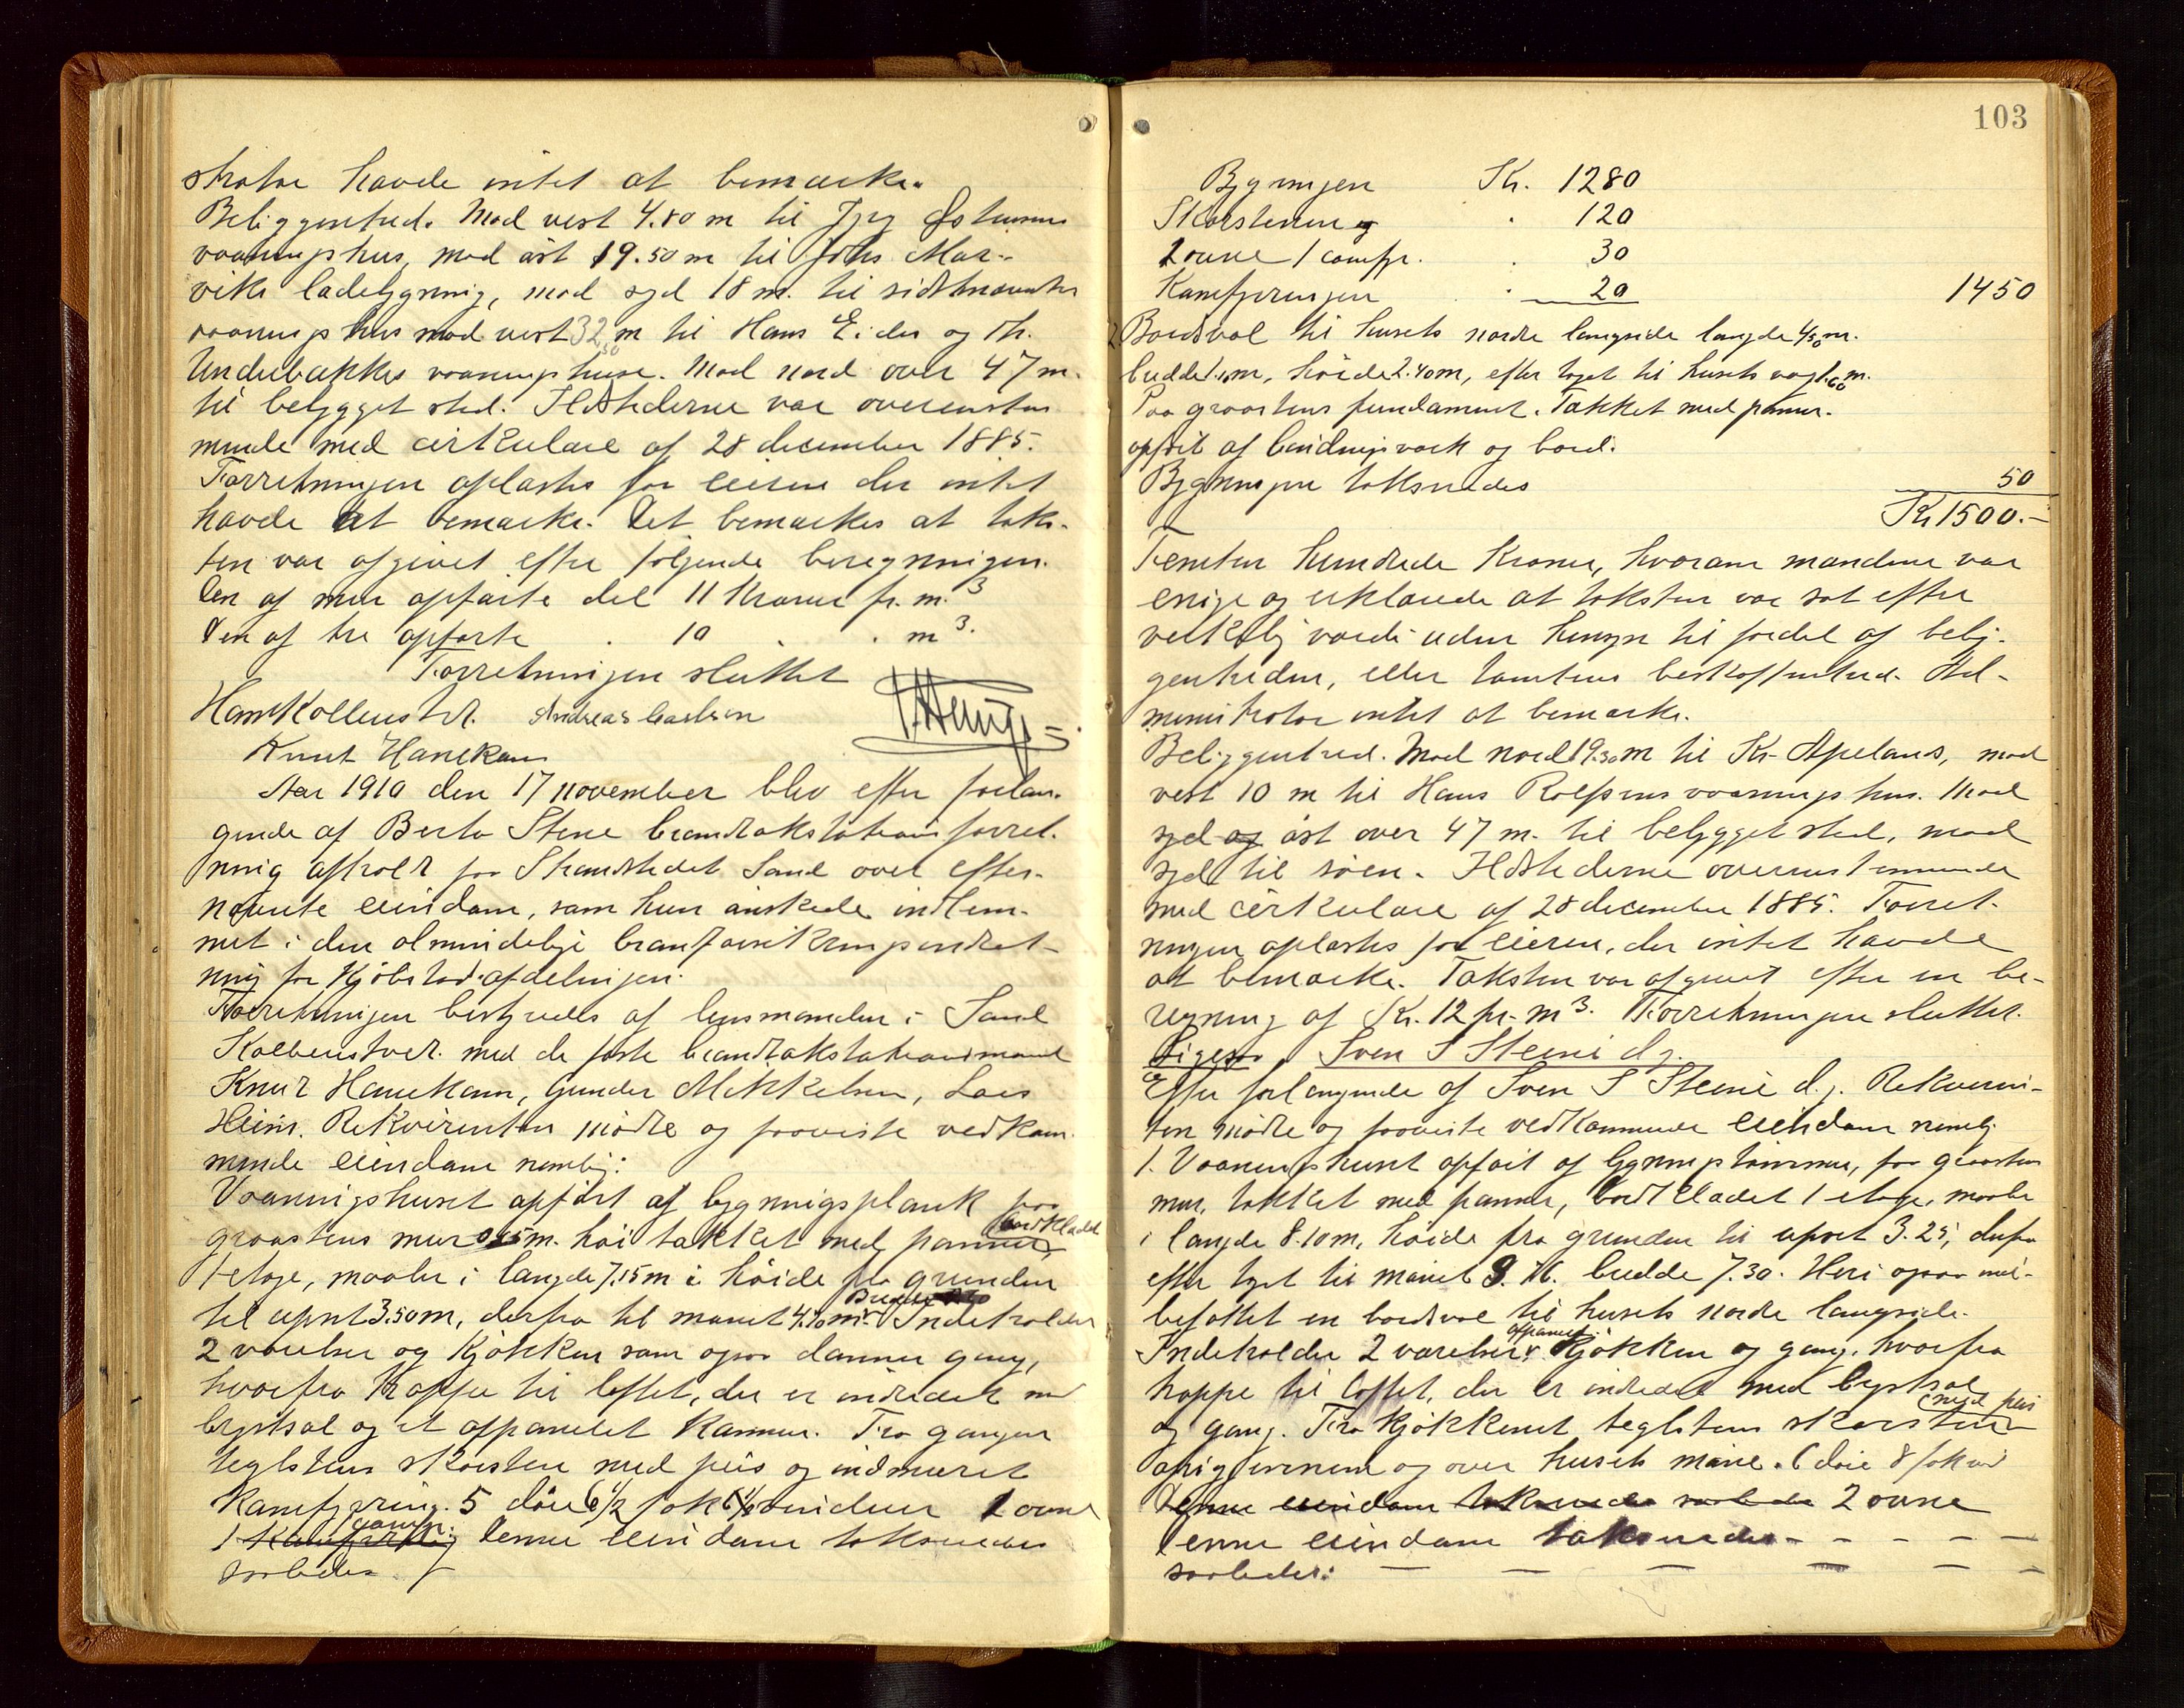 strator havde intet at bemærke.
Beliggenhed. Mod vest 4.80 m til
vaaningshus, mod øst 19.50 m til Johs Mar-
viks ladebygning, mod syd 18 m. til sidstnævntes
vaaningshus mod vest 32.50 m til Hans Eides og Th.
Underbakkes vaaningshuse. Mod nord over 47 m.
til bebygget sted. Ildstederne var overenstem
mende med cirkulære af 28 december 1885.
Forretningen oplæstes for eieren der intet
havde at bemærke. Det bemærkes at taks-
ten var afgivet efter følgende beregninger.
Den af mur opførte del 11 kroner pr. m.3
Den af træ opførte . 10 . . m3.
Forretningen sluttet
Hans Kolbenstvet. Andreas Carlsen
Knut Hanekam
Aar 1910 den 17 november blev efter forlan-
gende af Berta Stene brandtakstationsforret-
ning afholdt paa Strandstedet Sand over efter-
nævnte eiendom, som hun ønskede indlem-
met i den almindelige brandforsikringsindret-
ning for Kjøbstadafdelingen.
Forretningen bestyredes af lensmanden i Sand
Kolbenstvet. med de faste brandtakstationsmænd
Knut Hanekam, Gunder Mikkelsen, Lars
Heim. Rekvirenten mødte og paaviste vedkom-
mende eiendom nemlig:
Vaaningshuset opført af bygningsplank paa
graastens mur 0.55 m. høi takket med panner, bordklædt
1 etage, maaler i længde 7.15 m i høide fra grunden
til opsat 3.50 m, derfra til mønet 4.40 m. Bredde Indeholder
2 værelser og Kjøkken som ogsaa danner gang,
hvorfra trappe til loftet, der er indredet med
bryststal og et afpanelet kammer. Fra gangen
teglstens skorsten med peis og indmuret
kamfjering. 5 døre 6 1/2 fok 6 1/2 vinduer 1 ovne
1 Kamfjering comfr. Denne eiendom taksendes
saaledes.
103
Bygningen Kr. 1280
Skorstenen og . 120
1 ovne 1 comfr. . 30
Kamfjeringen . 20 1450
2 Bordsval til husets nordre langside længde 4.50 m.
bredde 1.10 m, høide 2.40 m, efter taget til husets væg 1.60 m.
Paa graastens fundament. Takket med panner.
opført af bindingsværk og bord.
Bygningen taksendes 50
Kr 1500.-
Femten hundrede Kroner, hvorom mændene var
enige og erklærede at taksten var sat efter
virkelig værdi uden hensyn til fordel af belig-
genheden, eller tomtens beskaffenhed. Ad-
ministrator intet at bemærke.
Beliggenhed. Mod nord 19.30 m til Kr. Apelands, mod
vest 10 m til Hans Rolfsens vaaningshus. Mod
syd og øst over 47 m. til bebygget sted, mod
syd til søen. Ildstederne overenstemmende
med cirkulære af 28 december 1885. Forret-
ningen oplæstes for eieren, der intet havde
at bemærke. Taksten var afgivet efter en be-
regning af Kr. 12 pr. m3. Forretningen sluttet.
Ligesaa Sven S Steine d.y.
Efter forlangende af Sven S Steine d.y. Rekviren-
ten mødte og paaviste vedkommende eiendom nemlig
1. Vaaningshuset opført af bygningstømmer, paa graastens
mur, takket med panner, bordklædet 1 etage, maaler
i længde 8.10 m, høide fra grunden til opsat 3.25, derfra
efter taget til mønet 9.16. bredde 7.30. Heri ogsaa ind-
befattet en bordsval til husets nordre langside.
Indeholder 2 værelser, afpanelet Kjøkken og gang, hvorfra
trappe til loftet, der er indredet med bryststal
og gang. Fra Kjøkkenet teglstens skorsten med peis
opigjennem og over husets møne. 6 døre 8 fok vind
Denne eiendom taksendes saaledes 2 ovne
Denne eiendom taksendes - - - - -
saaledes: